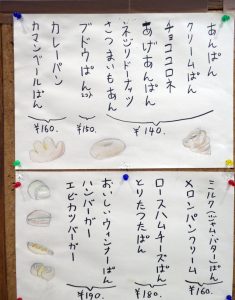 あんぱん
クリームぱん
チョココロネ
あげあんぱん
ネジリドーナッツ
さつまいもあん
¥140.
ブドウぱん
¥150.
カレーパン
カマンベールぱん
¥160.
ミルク(ジャム.バター)ぱん
メロンパンクリーム
¥160.
ロースハムチーズぱん
とりたつたぱん
¥180.
おいしいウィンナーぱん
ハンバーガー
エビカツバーガー
¥190.